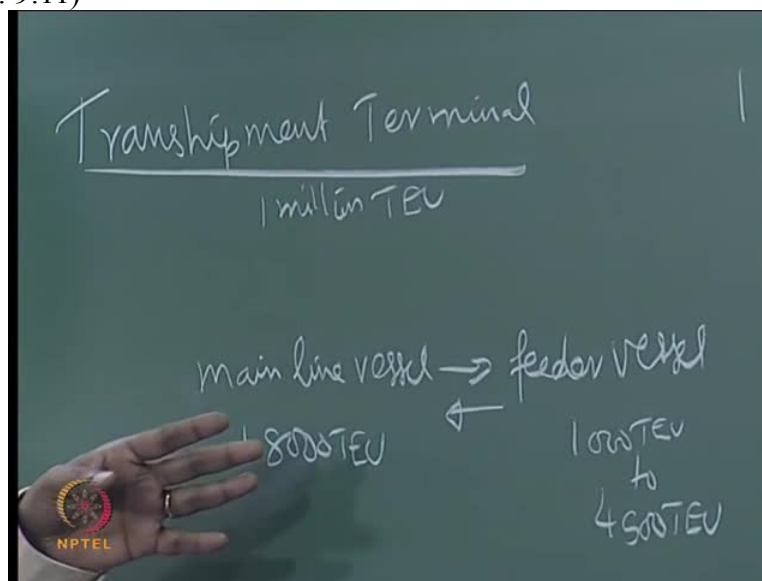 Transhipment Terminal
1 million TEU
main line vessel → feeder vessel
←
8000TEU
1000TEU
to
4500TEU
NPTEL